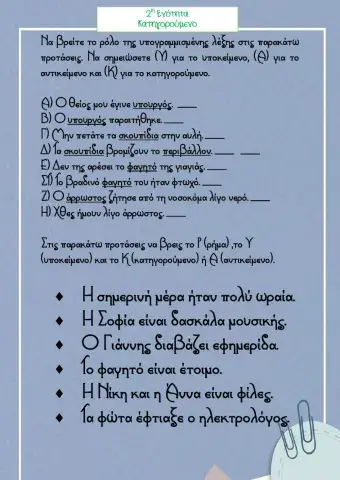 2η Ενότητα
Κατηγορούμενο
Να βρείτε το ρόλο της υπογραμμισμένης λέξης στις παρακάτω
προτάσεις. Να σημειώσετε (Υ) για το υποκείμενο, (Α) για το
αντικείμενο και (Κ) για το κατηγορούμενο.
Α) Ο θείος μου έγινε υπουργός. ____
Β) Ο υπουργός παραιτήθηκε. ____
Γ) Μην πετάτε τα σκουπίδια στην αυλή. ____
Δ) Τα σκουπίδια βρομίζουν το περιβάλλον. ____ ____
Ε) Δεν της αρέσει το φαγητό της γιαγιάς. ____
ΣΤ) Το βραδινό φαγητό του ήταν φτωχό. ____
Ζ) Ο άρρωστος ζήτησε από τη νοσοκόμα λίγο νερό. ____
Η) Χθες ήμουν λίγο άρρωστος. ____
Στις παρακάτω προτάσεις να βρεις το Ρ (ρήμα) ,το Υ
(υποκείμενο) και το Κ (κατηγορούμενο) ή Α (αντικείμενο).
♦ Η σημερινή μέρα ήταν πολύ ωραία.
♦ Η Σοφία είναι δασκάλα μουσικής.
♦ Ο Γιάννης διαβάζει εφημερίδα.
♦ Το φαγητό είναι έτοιμο.
♦ Η Νίκη και η Άννα είναι φίλες.
♦ Τα φώτα έφτιαξε ο ηλεκτρολόγος.